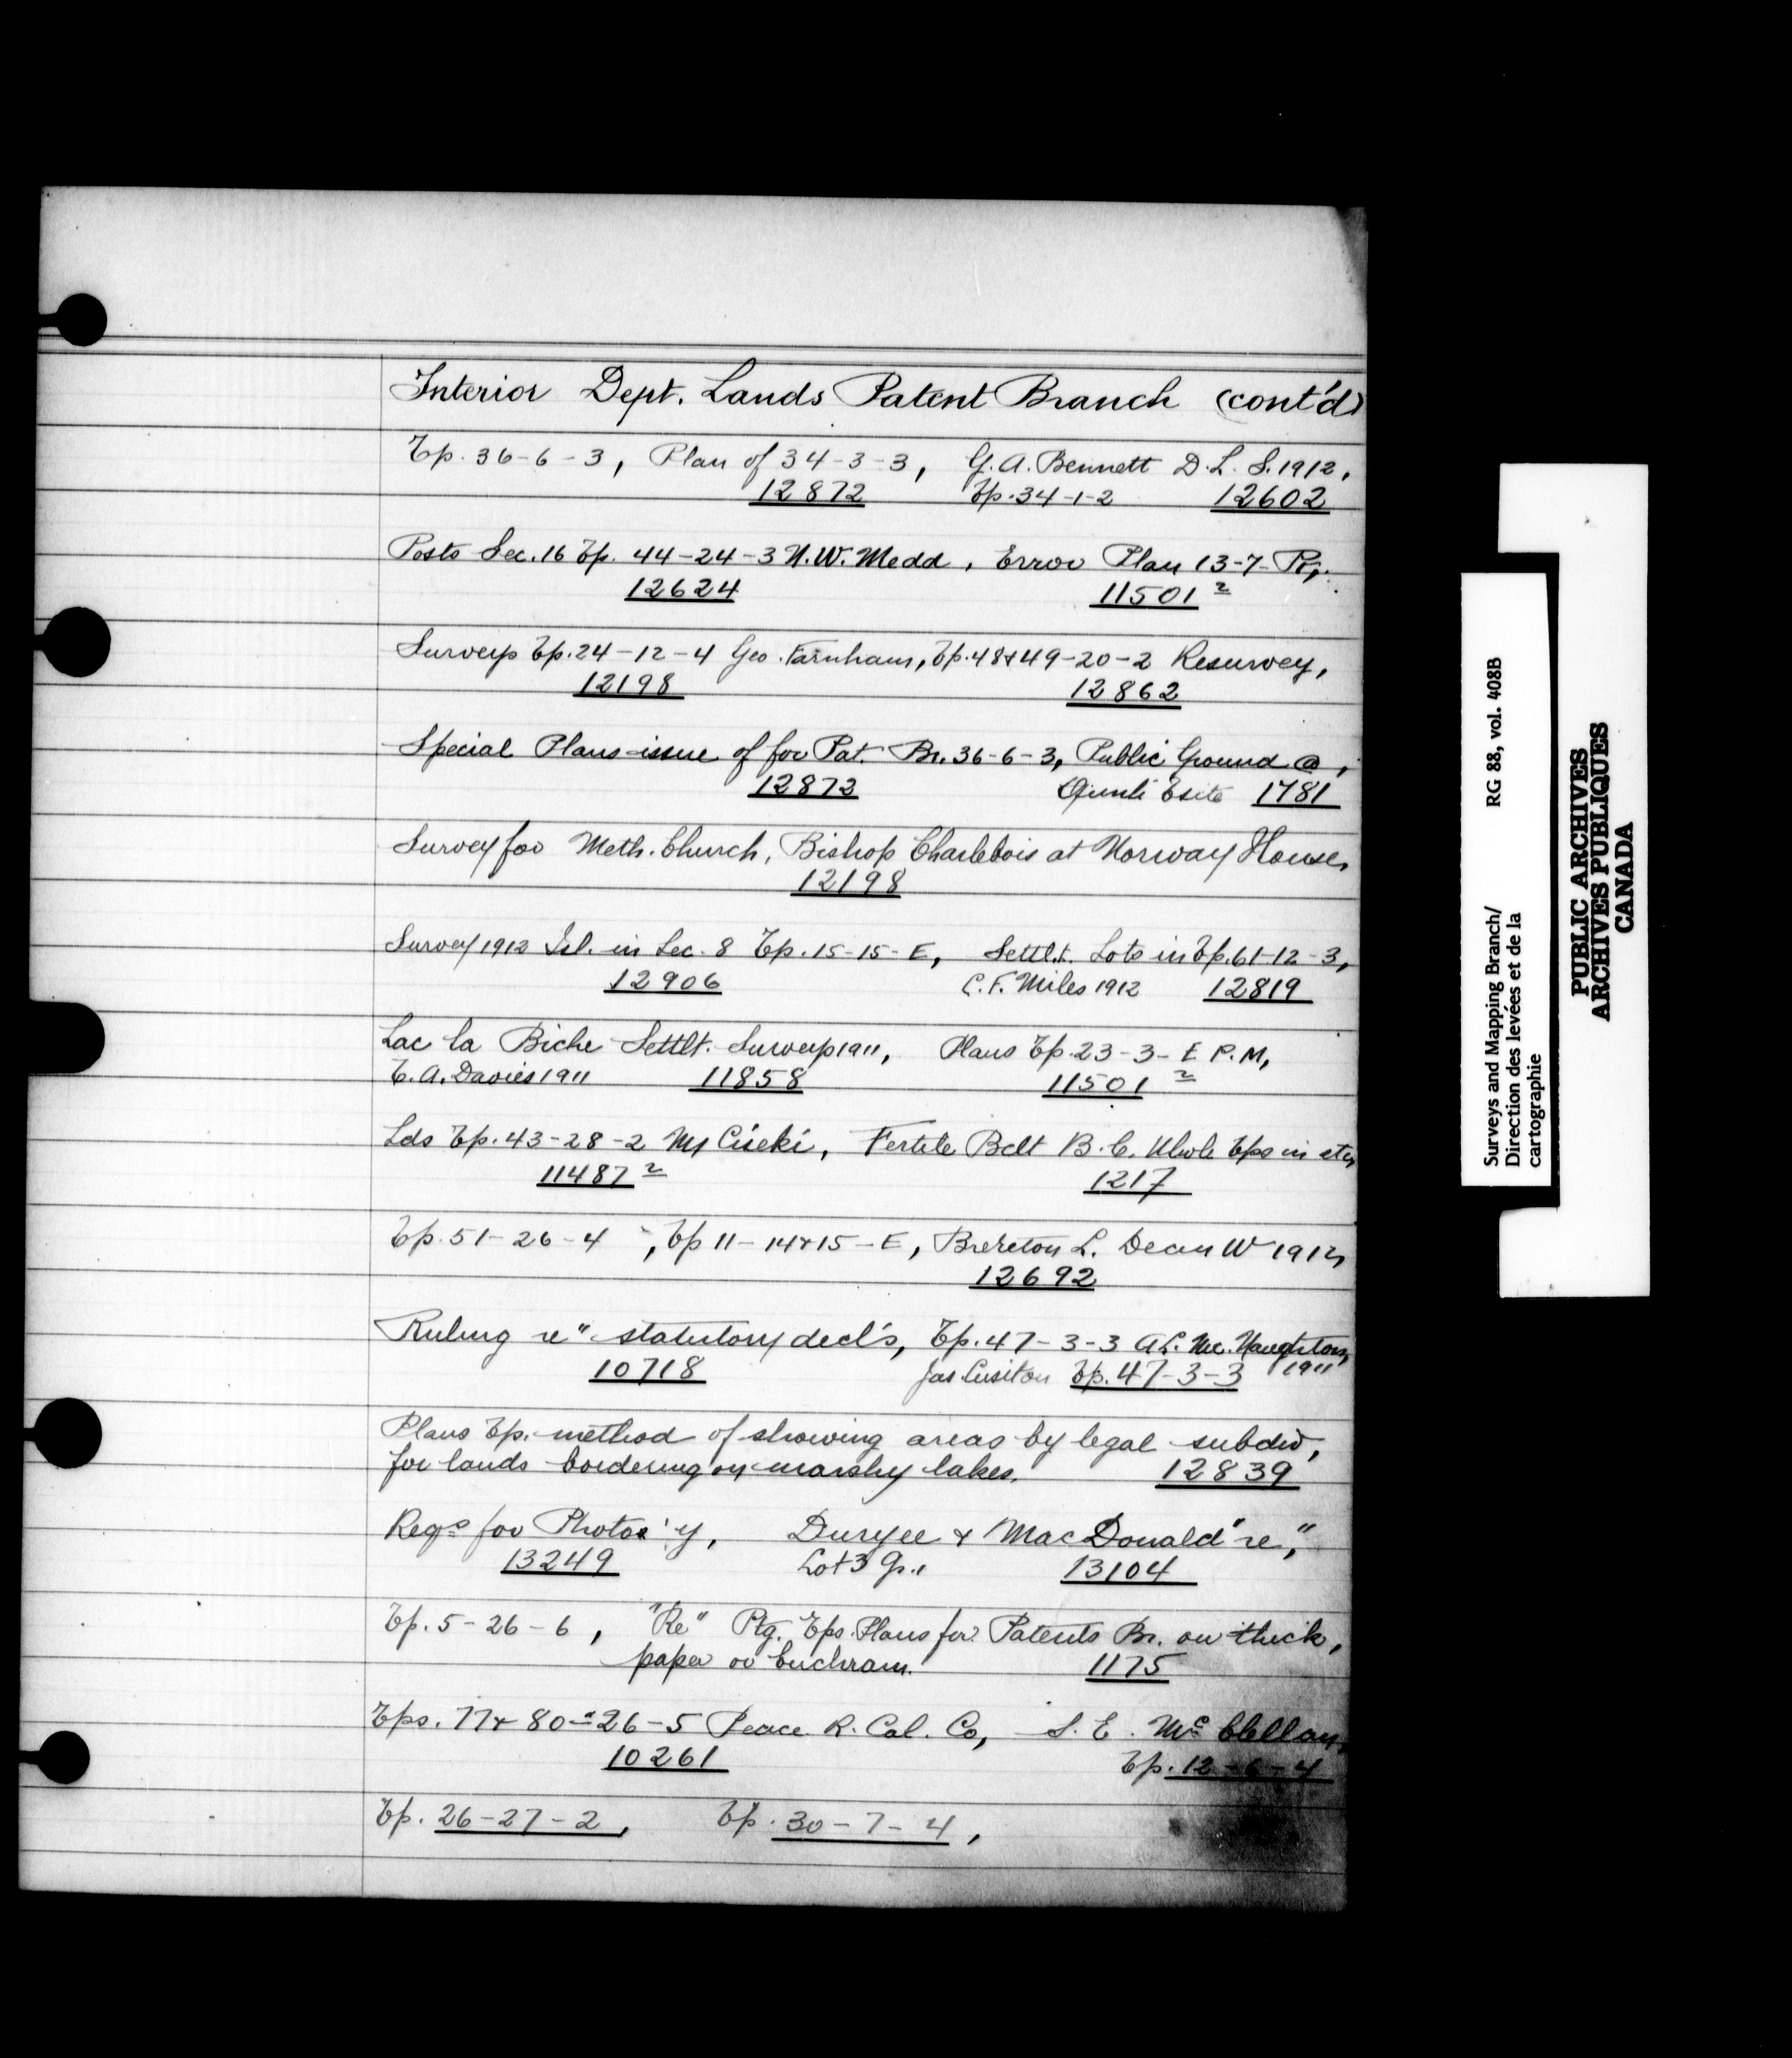 Interior Dept. Lands Patent Branch (cont'd)
Tp. 36-6-3, Plan of 34-3-3, G. A. Bennett D. L. S. 1912,
12872 Tp. 34-1-2 12602
Posts Sec. 16 Tp. 44-24-3 N. W. Medd, Error Plan 13-7- Pr,
12624 11501 2
Surveys Tp. 24-12-4 Geo. Farnham, Tp. 48 & 49-20-2 Resurvey,
12198 12862
Special Plans issue of for Pat. Br. 36-6-3, Public Ground @,
12873 Gimli Tsite 1781
Survey for Meth. Church, Bishop Charlebois at Norway House,
12198
Survey 1912 Isl. in Sec. 8 Tp. 15-15-E, Settlt. Lots in Tp. 61-12-3,
12906 C. F. Miles 1912 12819
Lac la Biche Settlt. Surveys 1911, Plans Tp. 23-3-E P. M,
T. A. Davies 1911 11858 11501 2
Lds Tp. 43-28-2 Ciseki, Fertile Belt B. C. Whole Tps in etc,
11487 2 1217
Tp. 51-26-4, Tp 11-14 & 15-E, Brereton L. Dean W 1912,
12692
Ruling "re" statutory decl's, Tp. 47-3-3 A L. Mc. Naughton,
10718 Jas Cusiton Tp. 47-3-3 1911
Plans Tp. method of showing areas by legal subdiv,
for lands bordering on marshy lakes. 12839
Reqs for Photo'y, Duryee & MacDonald "re",
13249 Lot 3 Gp. 1 13104
Tp. 5-26-6, "Re" Ptg. Tps. Plans for Patents Br. on thick,
paper or buckram. 1175
Tps. 77 & 80-26-5 Peace R. Col. Co, S. E. Mc Clellan,
10261 Tp. 12-6-4
Tp. 26-27-2, Tp. 30-7-4,
Surveys and Mapping Branch/ RG 88, vol. 408B
Direction des levées et de la
cartographie
PUBLIC ARCHIVES
ARCHIVES PUBLIQUES
CANADA